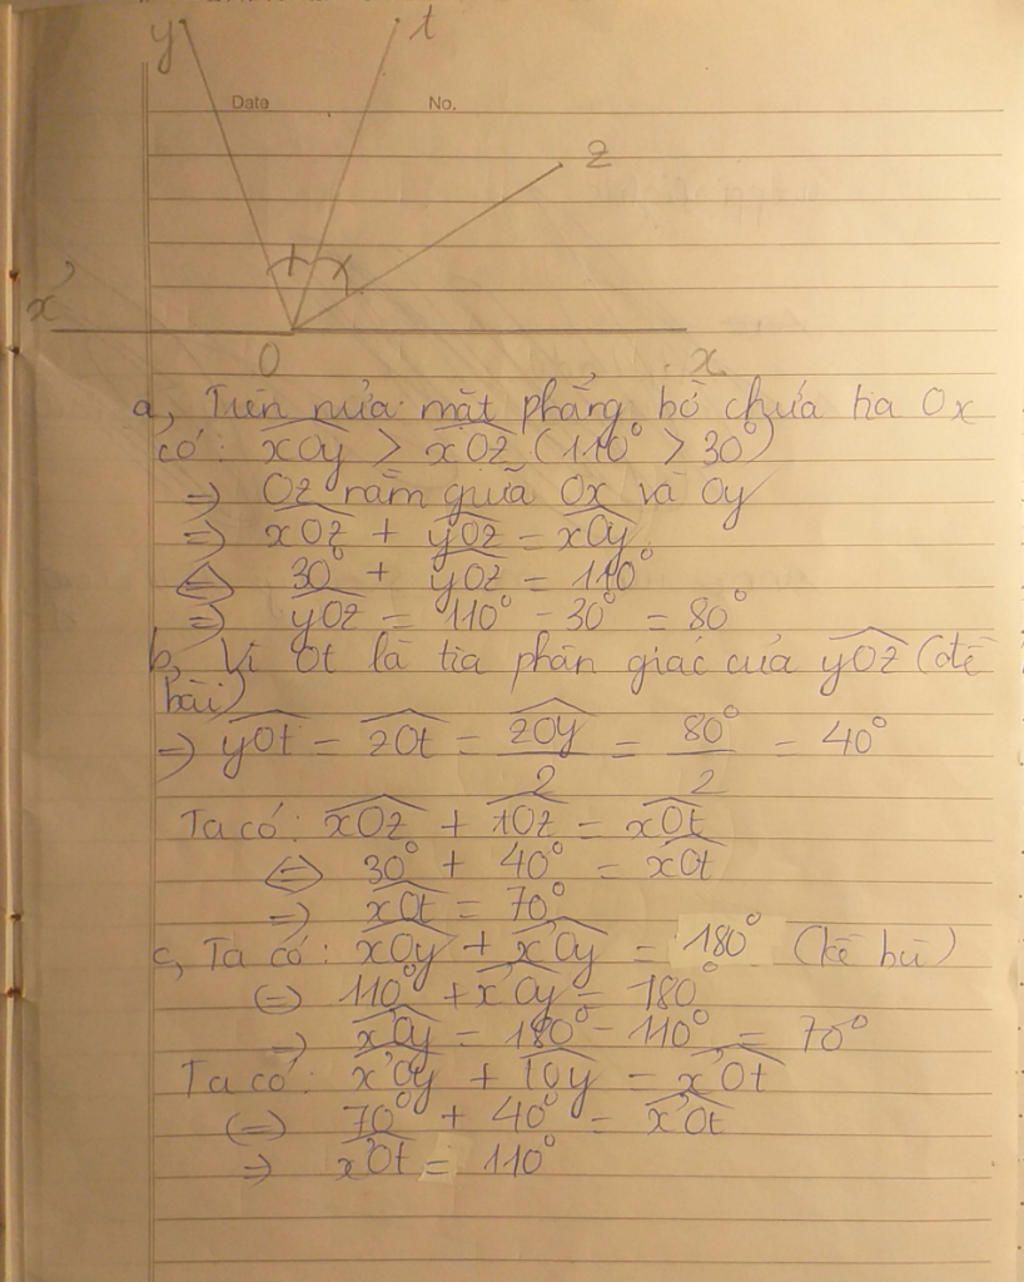 y t
Date No.
z
x'
O x
a, Trên nửa mặt phẳng bờ chứa tia Ox
có: xOy > xOz (110° > 30°)
=> Oz nằm giữa Ox và Oy
=> xOz + yOz = xOy
<=> 30° + yOz = 110°
=> yOz = 110° - 30° = 80°
b, Vì Ot là tia phân giác của yOz (đề
bài)
=> yOt = zOt = zOy/2 = 80°/2 = 40°
Ta có: xOz + tOz = xOt
<=> 30° + 40° = xOt
=> xOt = 70°
c, Ta có: xOy + x'Oy = 180° (kề bù)
<=> 110° + x'Oy = 180°
=> x'Oy = 180° - 110° = 70°
Ta có: x'Oy + tOy = x'Ot
<=> 70° + 40° = x'Ot
=> x'Ot = 110°